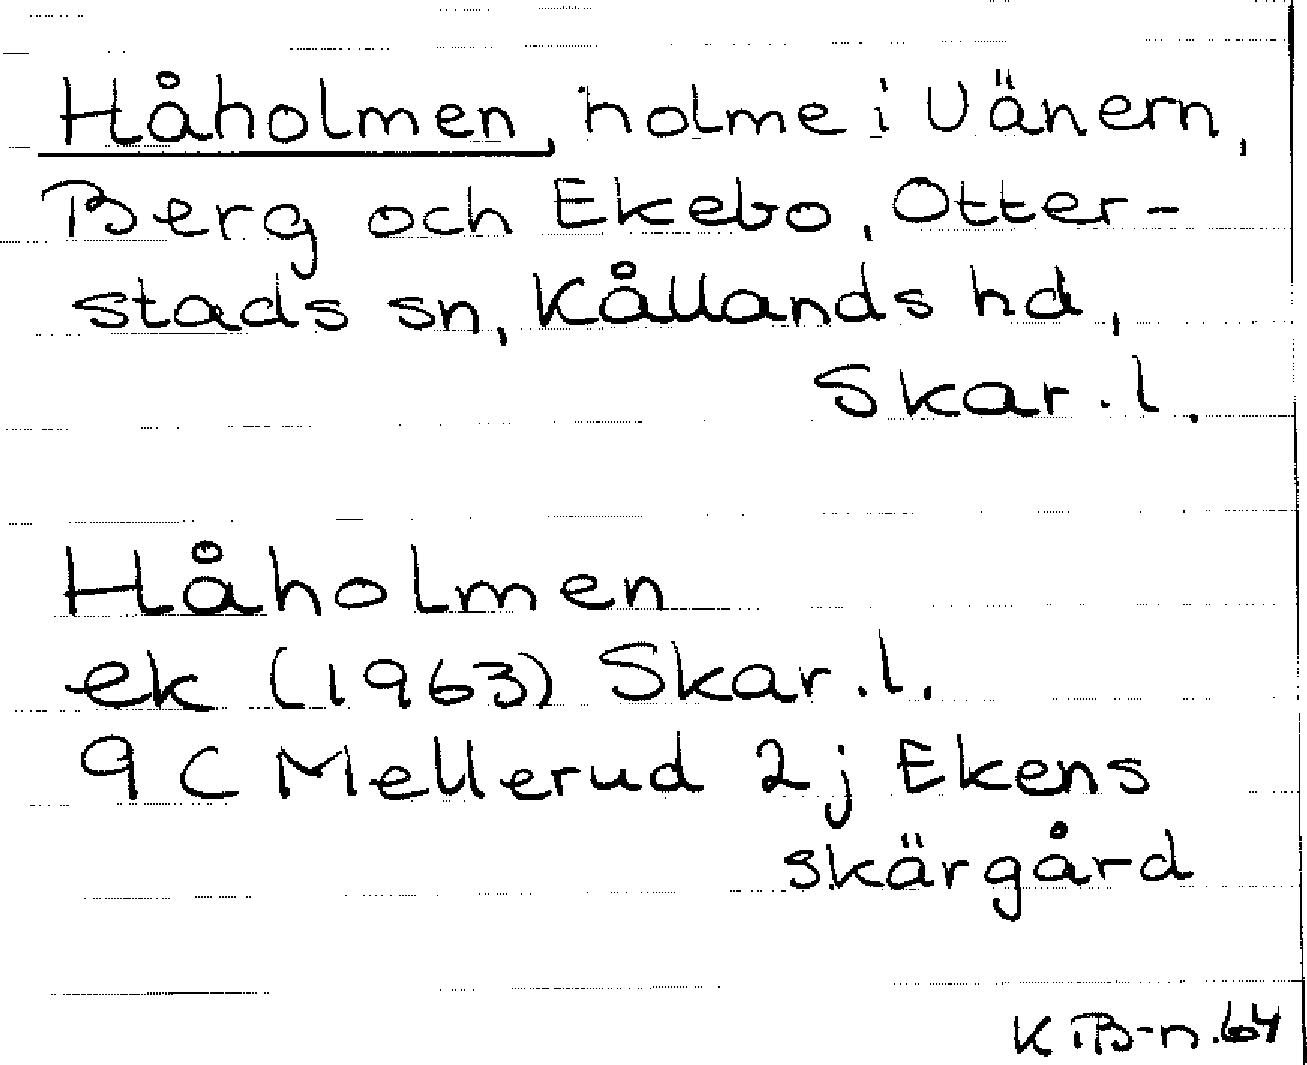 Håholmen, holme i Vänern,
Berg och Ekebo, Otter-
stads sn, Kållands hd,
Skar.l.
Håholmen
ek (1963) Skar.l.
9 C Mellerud 2j Ekens
skärgård
K B-n.64